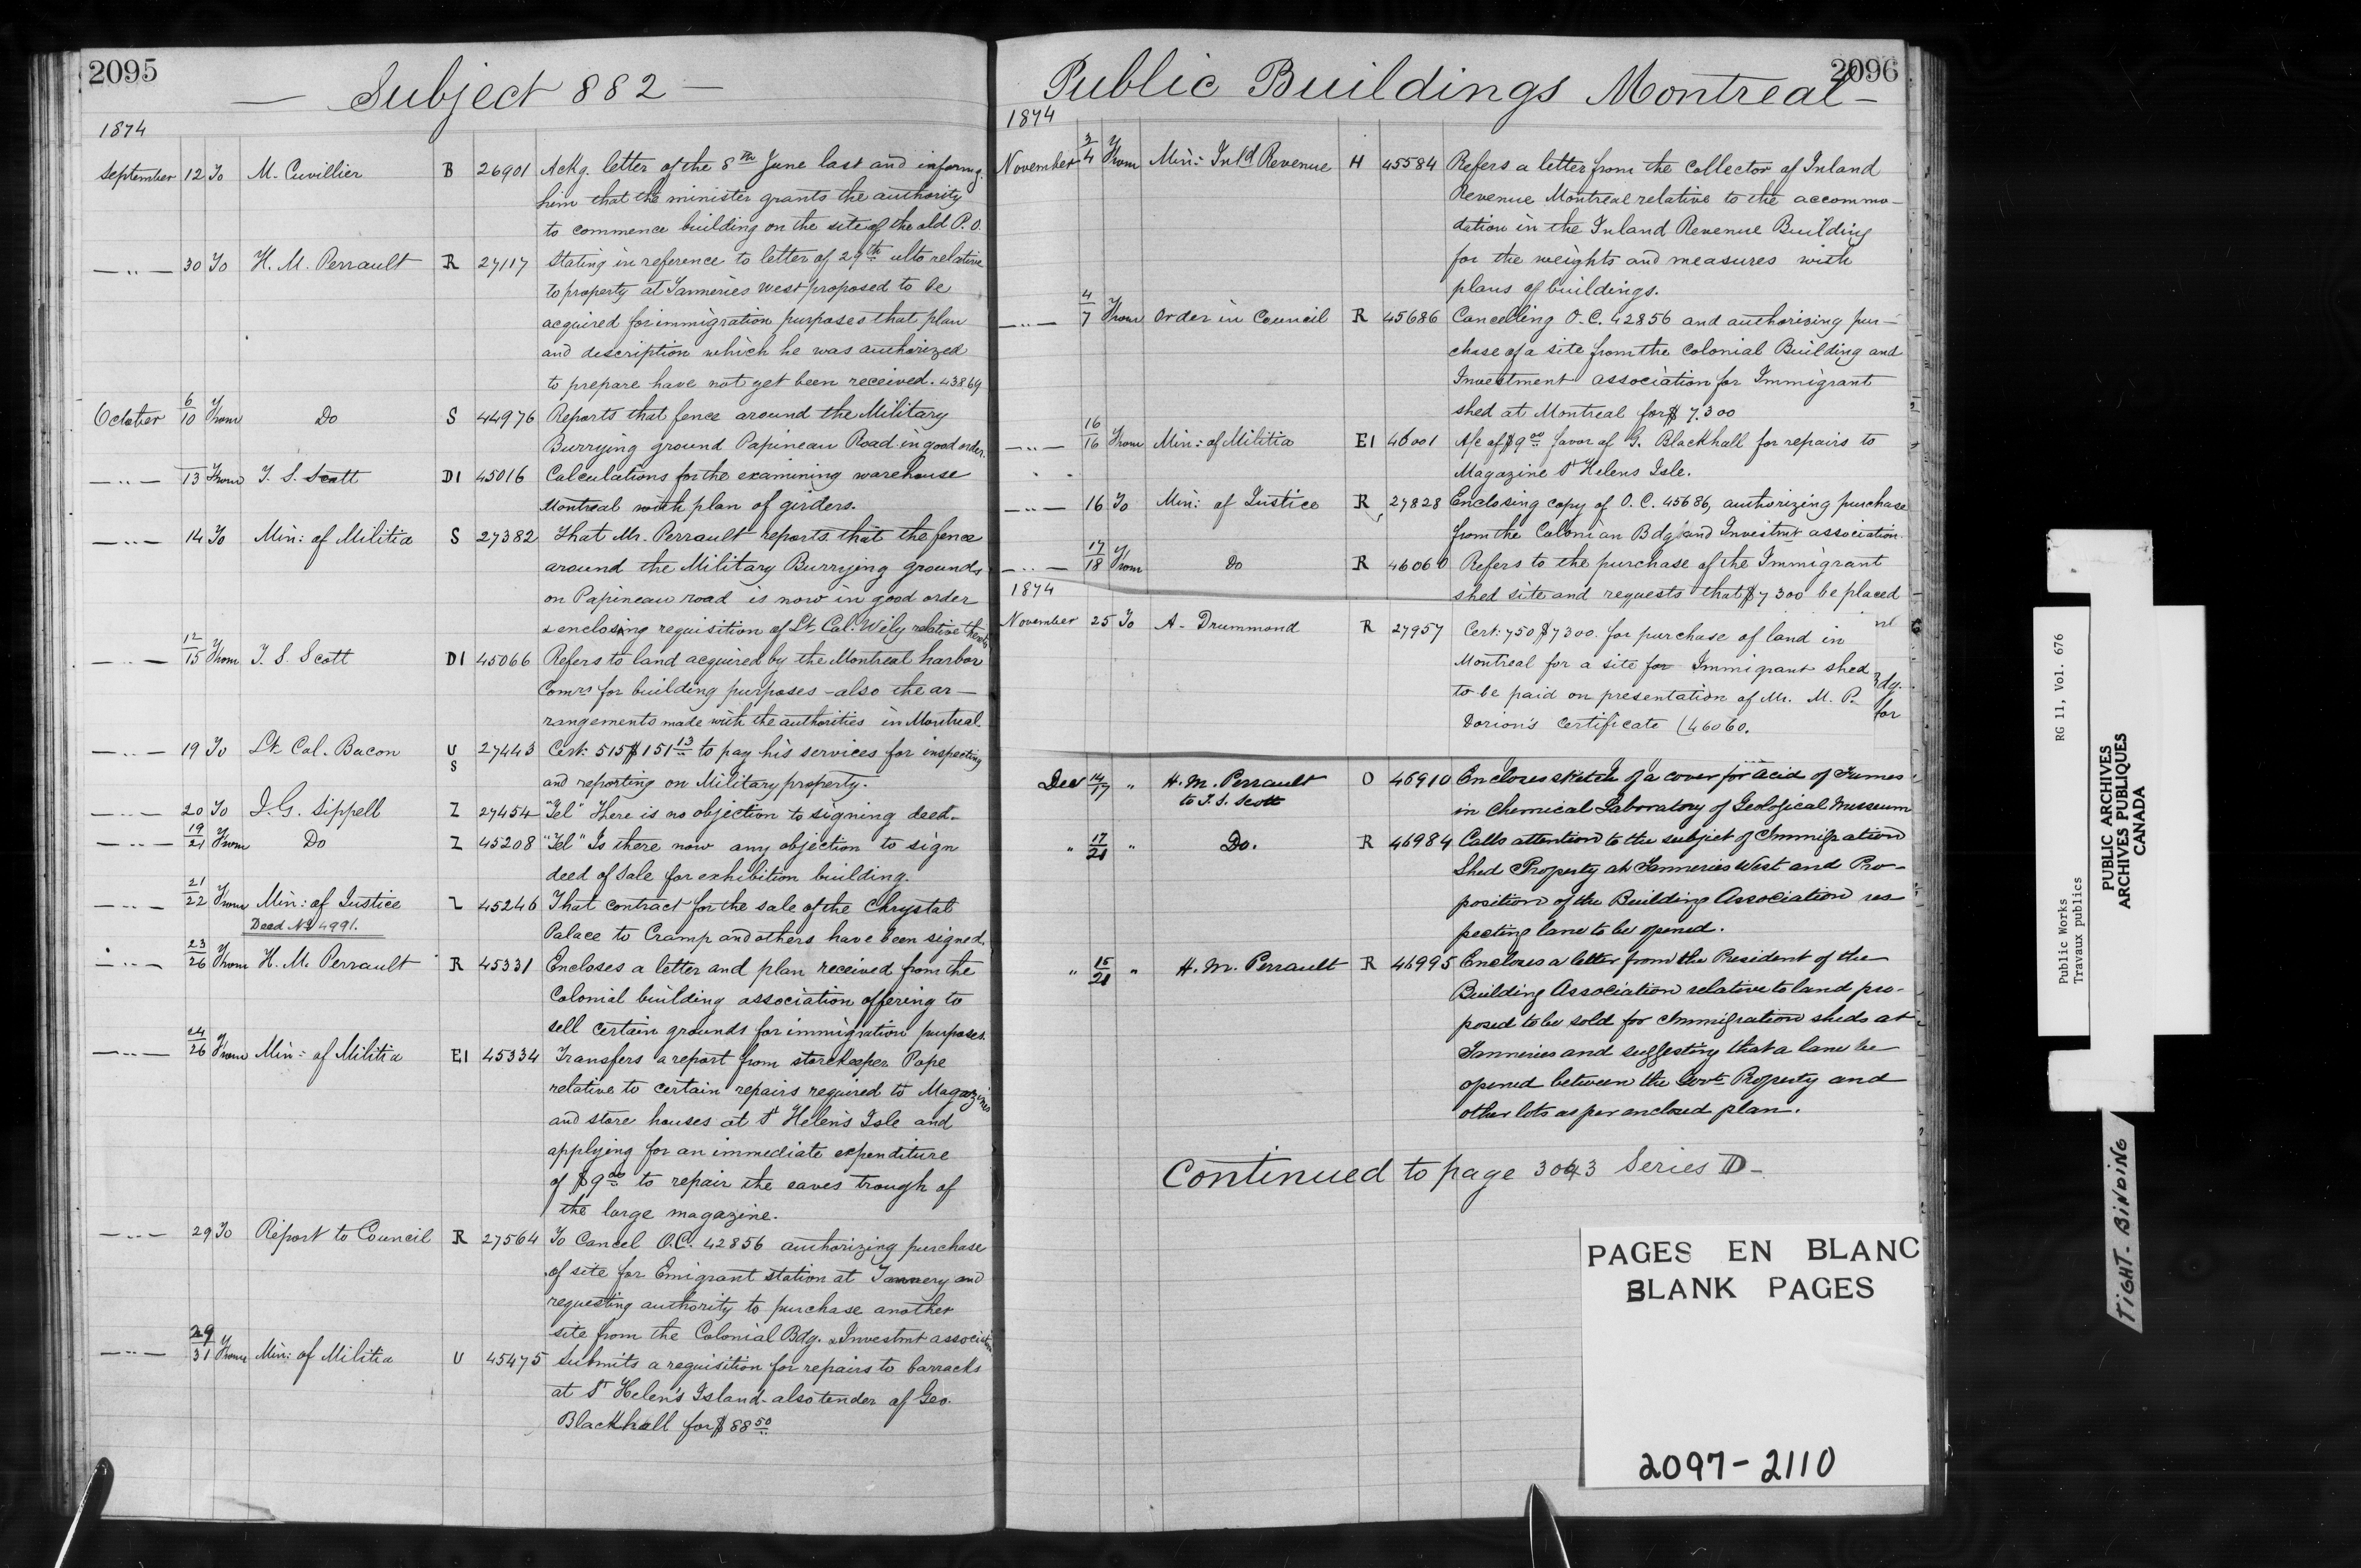 2095
— Subject 882 —
1874
September 12 To M. Cuvillier B 26901 Ackg. letter of the 8th June last and informg.
him that the minister grants the authority
to commence building on the site of the old P.O.
— " — 30 To H. M. Perrault R 27117 Stating in reference to letter of 29th ulto relative
to property at Tanneries West proposed to be
acquired for immigration purposes that plan
and description which he was authorized
to prepare have not yet been received. 43869
October 6/10 From Do S 44976 Reports that fence around the Military
Burrying ground Papineau Road in good order.
— " — 13 From T. S. Scott D1 45016 Calculations for the examining warehouse
Montreal with plan of girders.
— " — 14 To Min: of Militia S 27382 That Mr. Perrault reports that the fence
around the Military Burrying grounds
on Papineau road is now in good order
& enclosing requisition of Lt. Col. Wily relative thereto
— " — 12/15 From T. S. Scott D1 45066 Refers to land acquired by the Montreal harbor
Comrs for building purposes – also the ar-
rangements made with the authorities in Montreal.
— " — 19 To Lt. Col. Bacon U S 27443 Cert: 515 $151 13 to pay his services for inspecting
and reporting on Military property.
— " — 20 To J. G. Sippell Z 27454 "Tel" There is no objection to signing deed.
— " — 19/21 From Do Z 45208 "Tel" Is there now any objection to sign
deed of Sale for exhibition building.
— " — 21/22 From Min: of Justice Z 45246 That contract for the sale of the Chrystal
Deed No 4991.
Palace to Cramp and others have been signed.
— " — 23/26 From H. M. Perrault R 45331 Encloses a letter and plan received from the
Colonial building association offering to
sell certain grounds for immigration purposes.
— " — 24/26 From Min: of Militia E1 45334 Transfers a report from storekeeper Pope
relative to certain repairs required to Magazines
and store houses at St Helen's Isle and
applying for an immediate expenditure
of $9 00 to repair the eaves trough of
the large magazine.
— " — 29 To Report to Council R 27564 To Cancel O.C. 42856 authorizing purchase
of site for Emigrant station at Tannery and
requesting authority to purchase another
site from the Colonial Bdg. & Investmt association
— " — 29/31 From Min: of Militia U 45475 Submits a requisition for repairs to barracks
at St Helen's Island – also tender of Geo.
Blackhall for $88 50
2096
Public Buildings Montreal —
1874
November 3/4 From Min: Inld Revenue H 45584 Refers a letter from the Collector of Inland
Revenue Montreal relative to the accommo-
dation in the Inland Revenue Building
for the weights and measures with
plans of buildings.
— " — 4/7 From Order in Council R 45686 Cancelling O.C. 42856 and authorizing pur-
chase of a site from the Colonial Building and
Investment association for Immigrant
shed at Montreal for $7.300
— " — 16/16 From Min: of Militia E1 46001 A/c of $9 00 favor of G. Blackhall for repairs to
Magazine St Helens Isle.
— " — 16 To Min: of Justice R 27828 Enclosing copy of O.C. 45686, authorizing purchase
from the Colonian Bdg. and Investmt association.
— " — 17/18 From Do R 46060 Refers to the purchase of the Immigrant
shed site and requests that $7300 be placed
1874
November 25 To A. Drummond R 27957 Cert: 750 $7300. for purchase of land in
Montreal for a site for Immigrant shed
Bdg.
to be paid on presentation of Mr. M. P.
for
Dorion's Certificate (46060.
Dec 14/17 " H. M. Perrault to T. S. Scott O 46910 Encloses sketch of a cover for acid of Fumes
in Chemical Laboratory of Geological Museum
" 17/21 " Do. R 46984 Calls attention to the subject of Immigration
Shed Property at Tanneries West and Pro-
position of the Building Association res-
pecting lane to be opened.
" 15/21 " H. M. Perrault R 46995 Encloses a letter from the President of the
Building Association relative to land pro-
posed to be sold for Immigration sheds at
Tanneries and suggesting that a lane be
opened between the Govt. Property and
other lots as per enclosed plan.
Continued to page 3043 Series D —
PAGES EN BLANC
BLANK PAGES
2097-2110
RG 11, Vol. 676
Public Works
Travaux publics
PUBLIC ARCHIVES
ARCHIVES PUBLIQUES
CANADA
TIGHT. BINDING